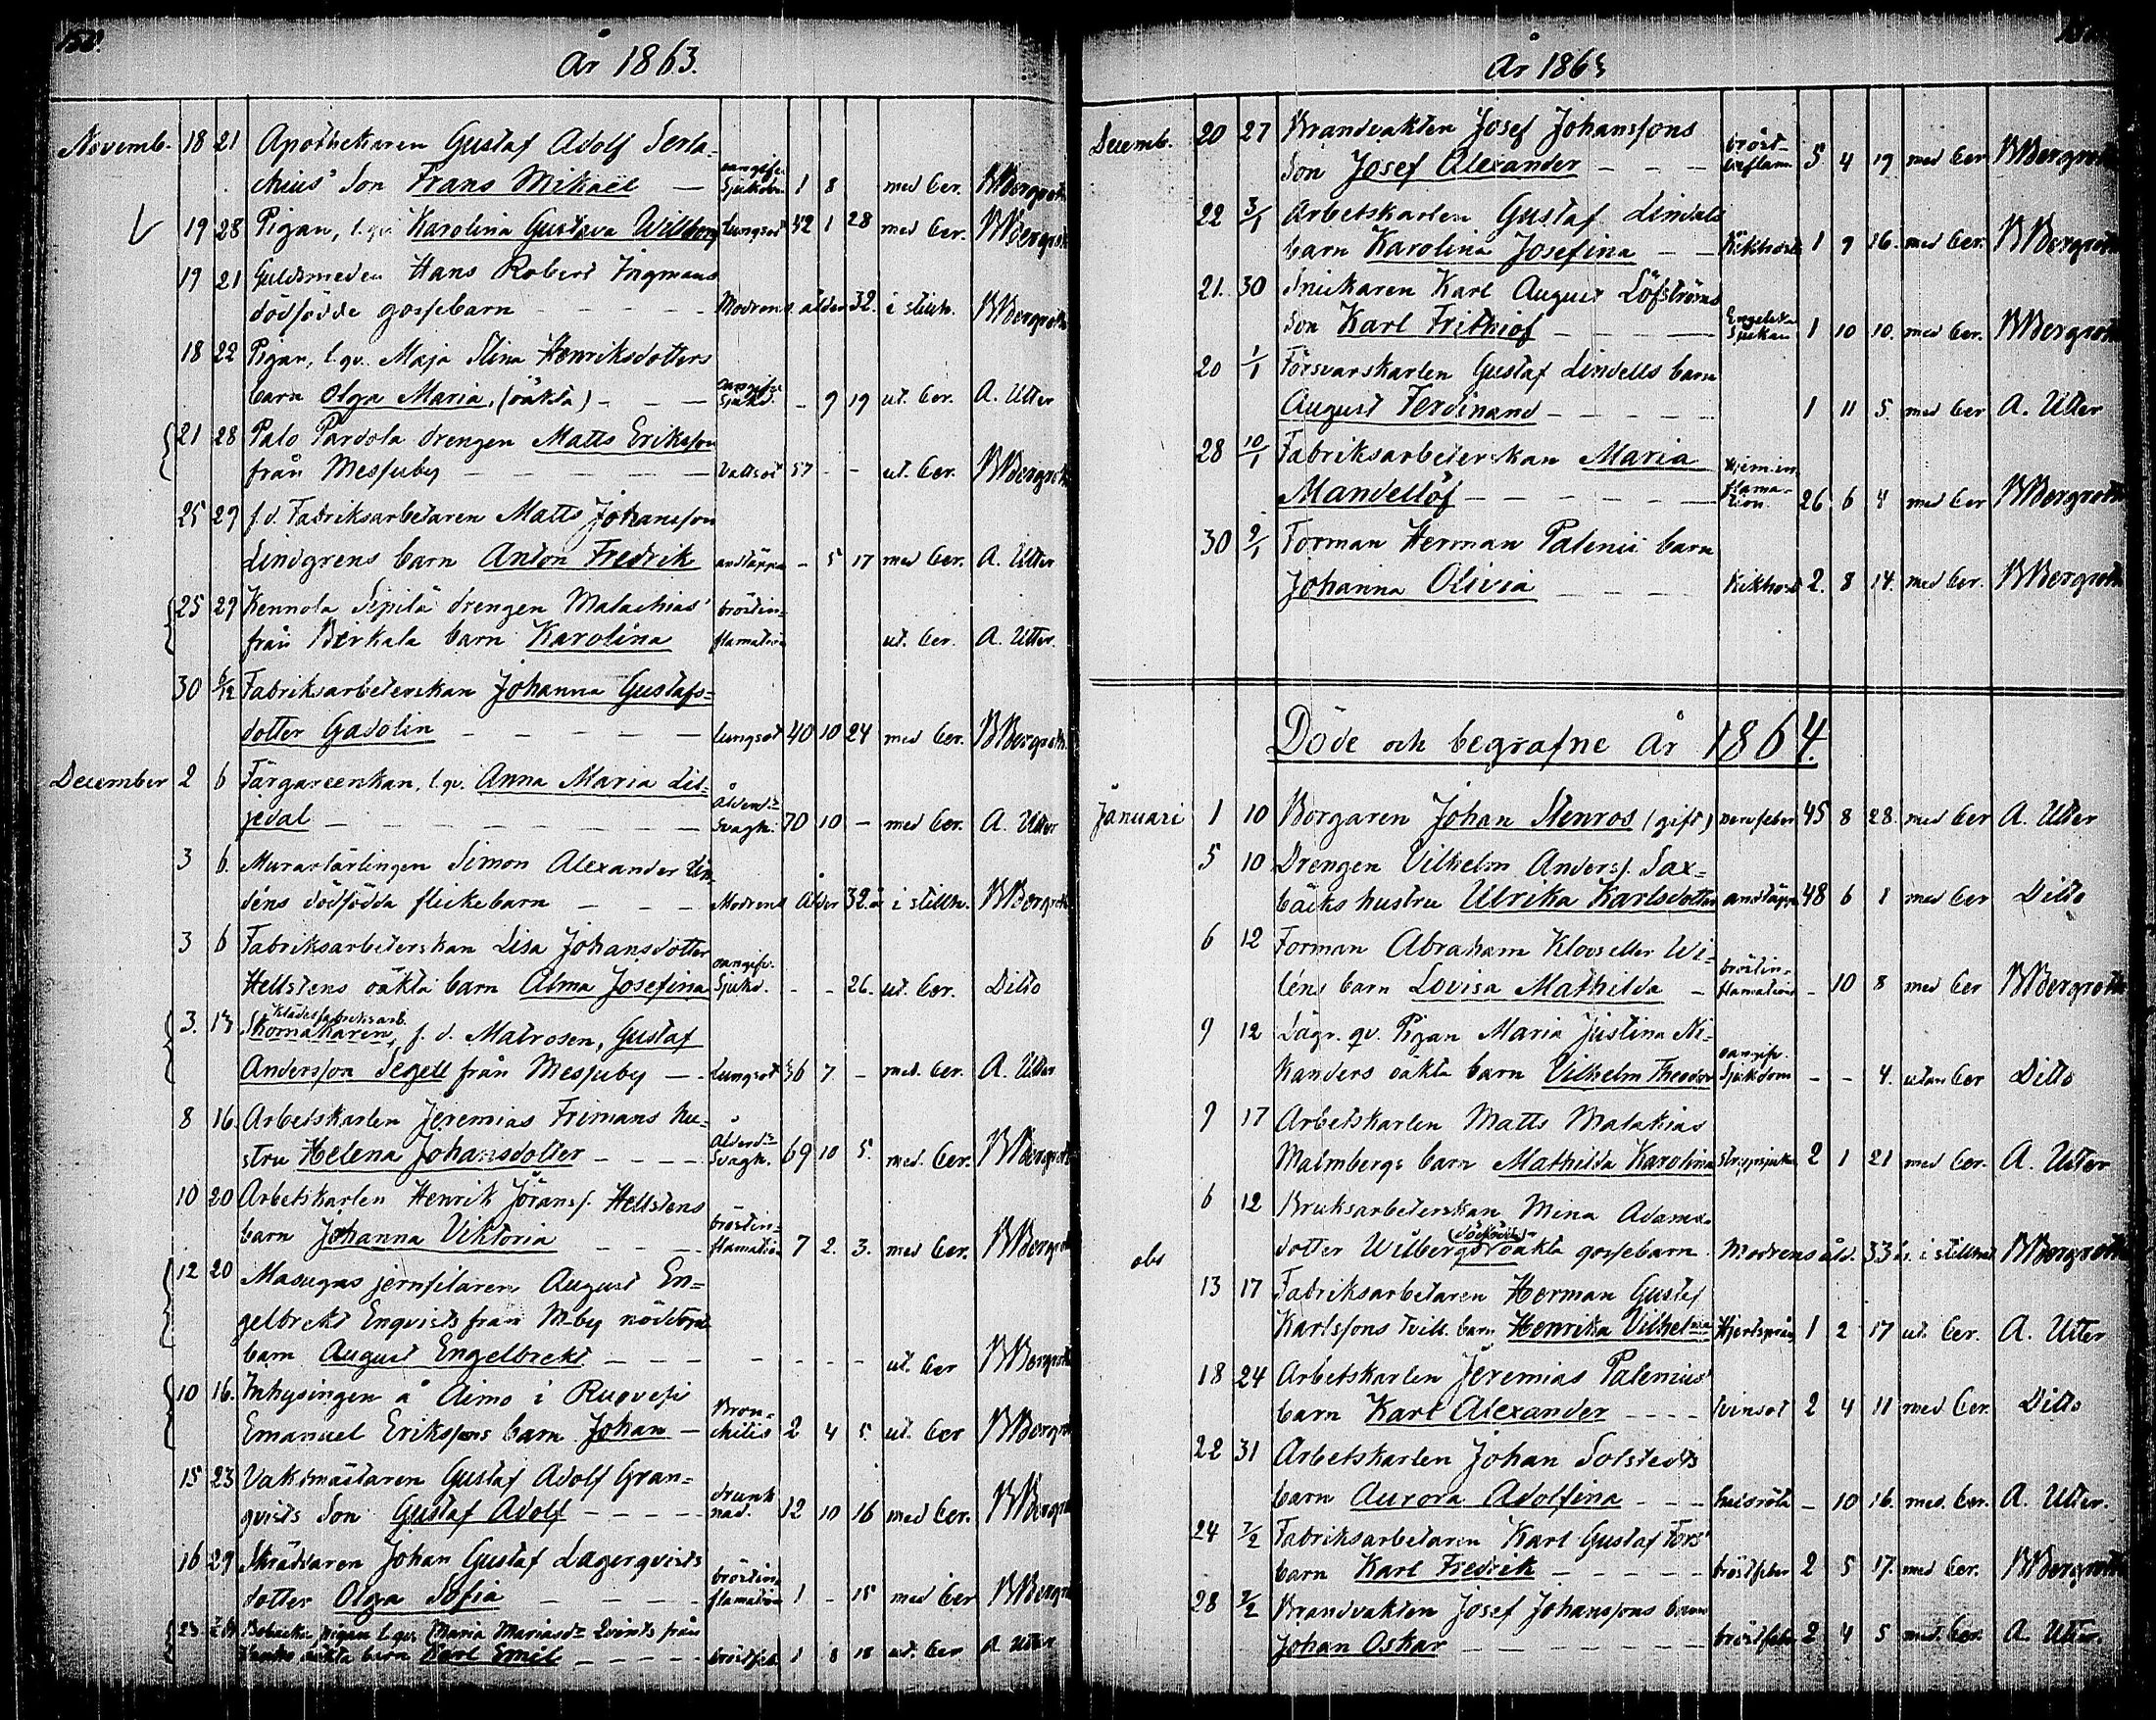 År 1863.
Novemb. 18 21 Apothekaren Gustaf Adolf Serla-
chius' Son Frans Mikaël — oangifv. Sjukdom 1 8 med Cer. BBergroth
19 28 Pigan, l. qv. Karolina Gustava Willberg Lungsot 52 1 28 med Cer. BBergroth
19 21 Guldsmeden Hans Robert Ingmans
dödfödde gossebarn Modrens ålder 32. i stillh. BBergroth
18 22 Pigan, l. qv. Maja Stina Henriksdotters
barn Olga Maria, (oäkta) oangifv. Sjukd. - 9 19 ut. Cer. A. Utter
21 28 Palo Pardola drengen Matts Eriksson
från Messuby Vattsot 57 - - ut. Cer. BBergroth
25 29 f. d. Fabriksarbetaren Matts Johansson
Lindgrens barn Anton Fredrik andtäppa - 5 17 med Cer. A. Utter
25 29 Kennola Sipilä drengen Malachias' bröstin-
från Birkala barn Karolina flamation ut. Cer. A. Utter.
30 6/12 Fabriksarbeterskan Johanna Gustafs-
dotter Gadolin Lungsot 40 10 24 med Cer. BBergroth
December 2 6 Färgareenkan, l. qv. Anna Maria Lil-
jedal Ålderd- Svagh. 70 10 - med Cer. A. Utter
3 6. Murarlärlingen Simon Alexander Un-
déns dödfödda flickebarn Modrens ålder 32. i stillh. BBergroth
3 6 Fabriksarbeterskan Lisa Johansdotter
Hellstens oäkta barn Alma Josefina oangifv. Sjukd. - - 26. ut. Cer. Ditto
Klädesfabriksarb.
3. 13 Skomakaren, f. d. Matrosen, Gustaf
Andersson Segell från Messuby — Lungsot 36 7 - med. Cer. A. Utter
8 16. Arbetskarlen Jeremias Frimans hu-
stru Helena Johansdotter Ålderd- Svagh. 69 10 5. med. Cer. BBergroth
10 20 Arbetskarlen Henrik Göranss. Hellstens
barn Johanna Viktoria bröstin- flamation 7 2. 3. med Cer. BBergroth
12 20 Masugns jernfilaren August En-
gelbrekt Enqvists från M-by nöddöpta
barn August Engelbrekt - - - ut. Cer BBergroth
10 16. Inhysingen å Aimo i Ruovesi
Emanuel Erikssons barn Johan — Bron- chitis 2 4 5. ut. Cer BBergroth
15 23 Vaktmästaren Gustaf Adolf Gran-
qvists Son Gustaf Adolf drunk nad. 12 10 16 med Cer. BBergroth
16 29 Skräddaren Johan Gustaf Lagerqvists
dotter Olga Sofia bröstin- flamation 1 - 15 med Cer BBergroth
23 pigan l. qv. Maria Mariasdr Qvists från
oäkta barn Karl Emil bröstfeb. 1 8 18 ut. Cer A Utter
År 1863
Decemb. 20 27 Brandvakten Josef Johanssons
Son Josef Alexander bröst- inflam 5 4 19 med Cer BBergroth
22 3/1 Arbetskarlen Gustaf Lindals
barn Karolina Josefina Kikhosta 1 9 16. med Cer. BBergroth
21. 30 Snickaren Karl August Löfströms
Son Karl Frithiof Engelska Sjukan 1 10 10. med Cer. BBergroth
20 1/1 Försvarskarlen Gustaf Lindells barn
August Ferdinand 1 11 5. med Cer A. Utter
28 10/1 Fabriksarbeterskan Maria
Mandellöf Hjern in- flama- tion. 26 6 4 med Cer BBergroth
30 9/1 Forman Herman Palenii barn
Johanna Olivia Kikhosta 2. 8 14. med Cer. BBergroth
Döde och begrafne År 1864.
Januari 1 10 Borgaren Johan Stenros (gift) nervfeber 45 8 28. med Cer A. Utter
5 10 Drengen Vilhelm Anderss. Sax-
bäcks hustru Ulrika Karlsdotter andtäppa 48 6 1 med Cer Ditto
6 12 Forman Abraham Kloos eller Wi-
léns barn Lovisa Mathilda — bröstin- flamation - 10 8 med Cer BBergroth
9 12 Lägr. qv. Pigan Maria Justina Ni-
kanders oäkta barn Vilhelm Theodor oangifv. Sjukdom - - 4. utan Cer Ditto
9 17 Arbetskarlen Matts Malakias
Malmbergs barn Mathilda Karolina Strypsjuka 2 1 21 med Cer. A. Utter
6 12 Bruksarbeterskan Mina Adams-
dödfödde
obs dotter Wilbergs oäkta gossebarn. Modrens åld. 33 år. i stillhet BBergroth
13 17 Fabriksarbetaren Herman Gustaf
Karlssons tvill. barn Henrika Vilhelmina Hjertsprång 1 2 17 ut. Cer. A. Utter
18 24 Arbetskarlen Jeremias Palenius'
barn Karl Alexander tvinsot 2 4 11 med Cer. Ditto
22 31 Arbetskarlen Johan Solstedts
barn Aurora Adolfina - 10 16. med. Cer. A. Utter.
24 7/2 Fabriksarbetaren Karl Gustaf Fors'
barn Karl Fredrik bröstfeber 2 5 17. med Cer. BBergroth
28 7/2 Brandvakten Josef Johanssons barn
Johan Oskar bröstfeber 2 4 5 med. Cer. A. Utter.